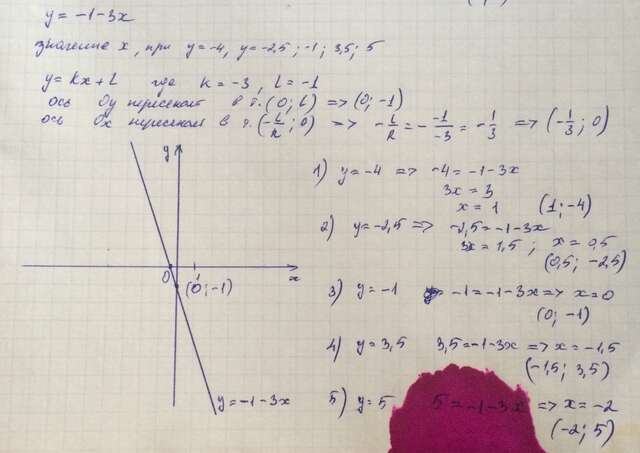 y = -1-3x
значение x, при y=-4, y=-2,5; -1; 3,5; 5
y = kx + l где k = -3, l = -1
ось Oy пересекает в т. (0; l) => (0; -1)
ось Ox пересекает в т. (-l/k; 0) => -l/k = - -1/-3 = -1/3 => (-1/3; 0)
y
0
1
x
(0; -1)
y = -1-3x
1) y=-4 => -4=-1-3x
3x = 3
x = 1 (1; -4)
2) y=-2,5 => -2,5=-1-3x
3x = 1,5 ; x = 0,5
(0,5; -2,5)
3) y = -1 -1=-1-3x => x=0
(0; -1)
4) y = 3,5 3,5=-1-3x => x=-1,5
(-1,5; 3,5)
5) y=5 5=-1-3x => x=-2
(-2; 5)